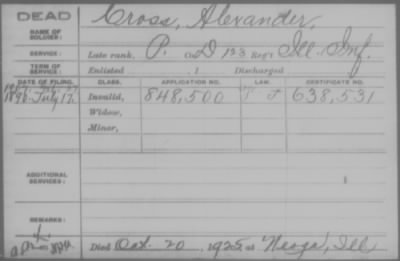 DEAD
NAME OF SOLDIER: Cross, Alexander,
SERVICE: Late rank, P. Co. D 123 Reg't Ill. Inf.
TERM OF SERVICE: Enlisted , 1 Discharged , 1
DATE OF FILING. CLASS. APPLICATION NO. LAW. CERTIFICATE NO.
1890 July 17. Invalid, 848,500 638,531
Widow,
Minor,
ADDITIONAL SERVICES:
REMARKS:
Died Oct. 20, 1925, at Neoga, Ill